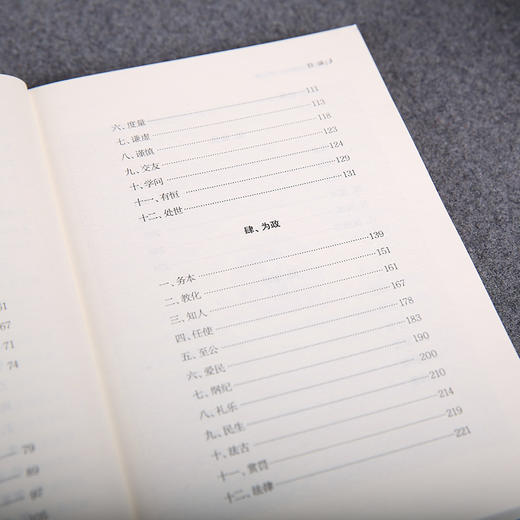 61
67
71
74
79
89
97
目 录
六、度量 111
七、谦虚 113
八、谨慎 118
九、交友 123
十、学问 124
十一、有恒 129
十二、处世 131
肆、为政
一、务本 139
二、教化 151
三、知人 161
四、任使 167
五、至公 178
六、爱民 183
七、纲纪 190
八、礼乐 200
九、民生 210
十、法古 214
十一、赏罚 219
十二、法律 221